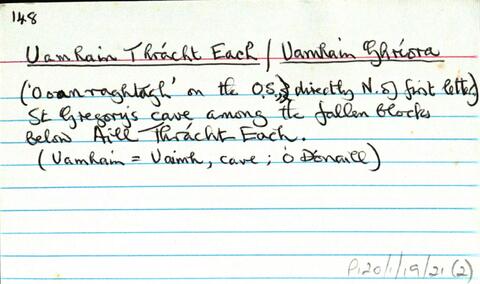 148
Uamhain Thrácht Each / Uamhain Ghríora
('Ooanraghtagh' on the O.S., directly N. of first letter)
St Gregory's cave among the fallen blocks
below Aill Thrácht Each.
(Uamhain = Uaimh, cave; Ó Dónaill)
P120/1/19/21 (2)